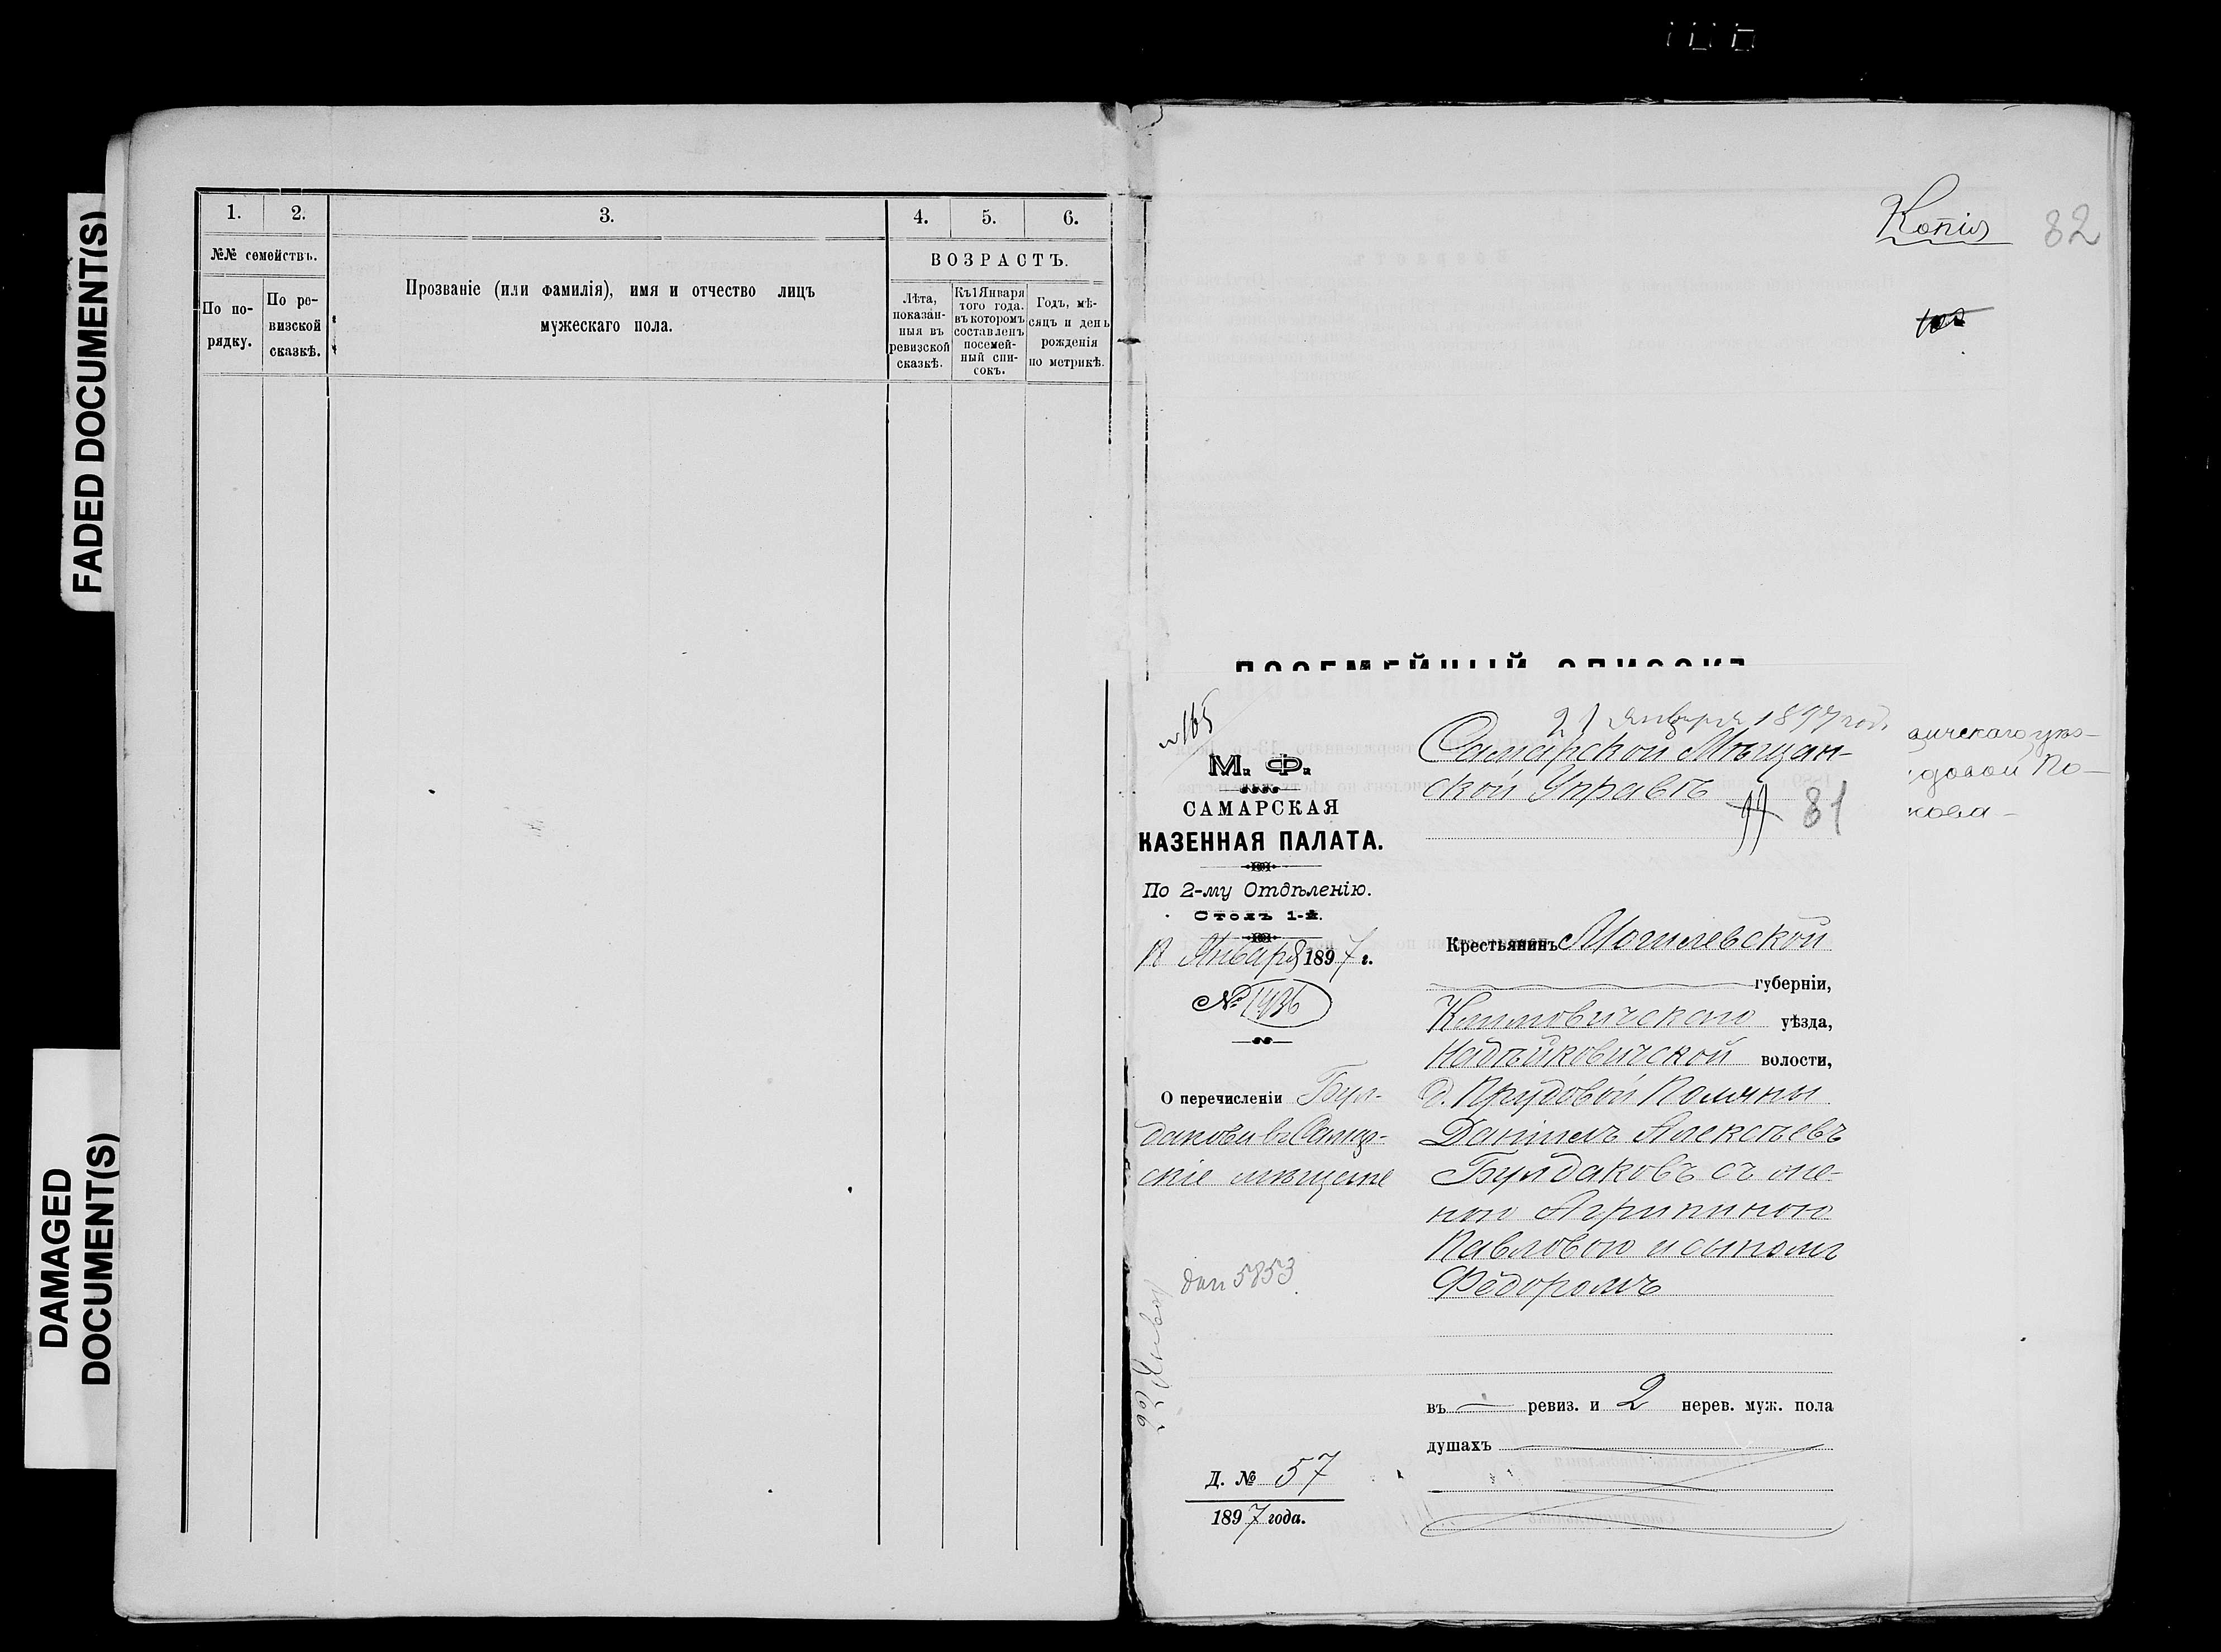 FADED DOCUMENT(S)
DAMAGED
DOCUMENT(S)
1.
2.
3.
4.
5.
6.
№№ семействъ.
По по-
рядку.
По ре-
визской
сказкѣ.
Прозваніе (или фамилія), имя и отчество лицъ
мужескаго пола.
ВОЗРАСТЪ.
Лѣта,
показан-
ныя въ
ревизской
сказкѣ.
Къ 1 Января
того года.
въ которомъ
составленъ
посемей-
ный спи-
сокъ.
Годъ, мѣ-
сяцъ и день
рожденія
по метрикѣ.
Копія
82
ПОСЕМЕЙНЫЙ СПИСОКЪ
№165
М. Ф.
САМАРСКАЯ
КАЗЕННАЯ ПАЛАТА.
По 2-му Отдѣленію.
Столъ 1-й.
Января 1897 г.
№ 1436
О перечисленіи Бул-
дакова въ Самар-
скіе мѣщане
5853
22 Января
Д. № 57
1897 года.
21 января 1897 год.
Самарской Мѣщан-
ской Управѣ
81
Крестьянинъ Могилевской
губерніи,
Климовичскаго уѣзда,
Надѣйковичской волости,
д. Прудовой Поляны
Даніилъ Алексѣевъ
Булдаковъ съ же-
ною Агрипиною
Павловою и сыномъ
Федоромъ
въ — ревиз. и 2 нерев. муж. пола
душахъ
ичскаго уѣз-
довой По-
кова